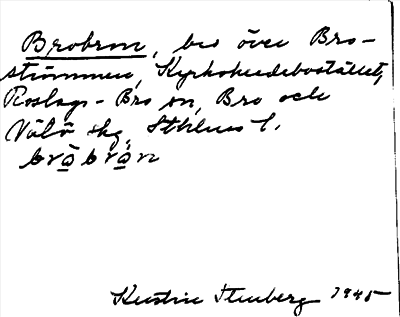 Brobron, bro över Bro-
strömmen, Kyrkoherdebostället,
Roslags-Bro sn, Bro och
Vätö skg, Sthlms l.
bro̱brȧ̱n
Kerstin Stenberg 1945